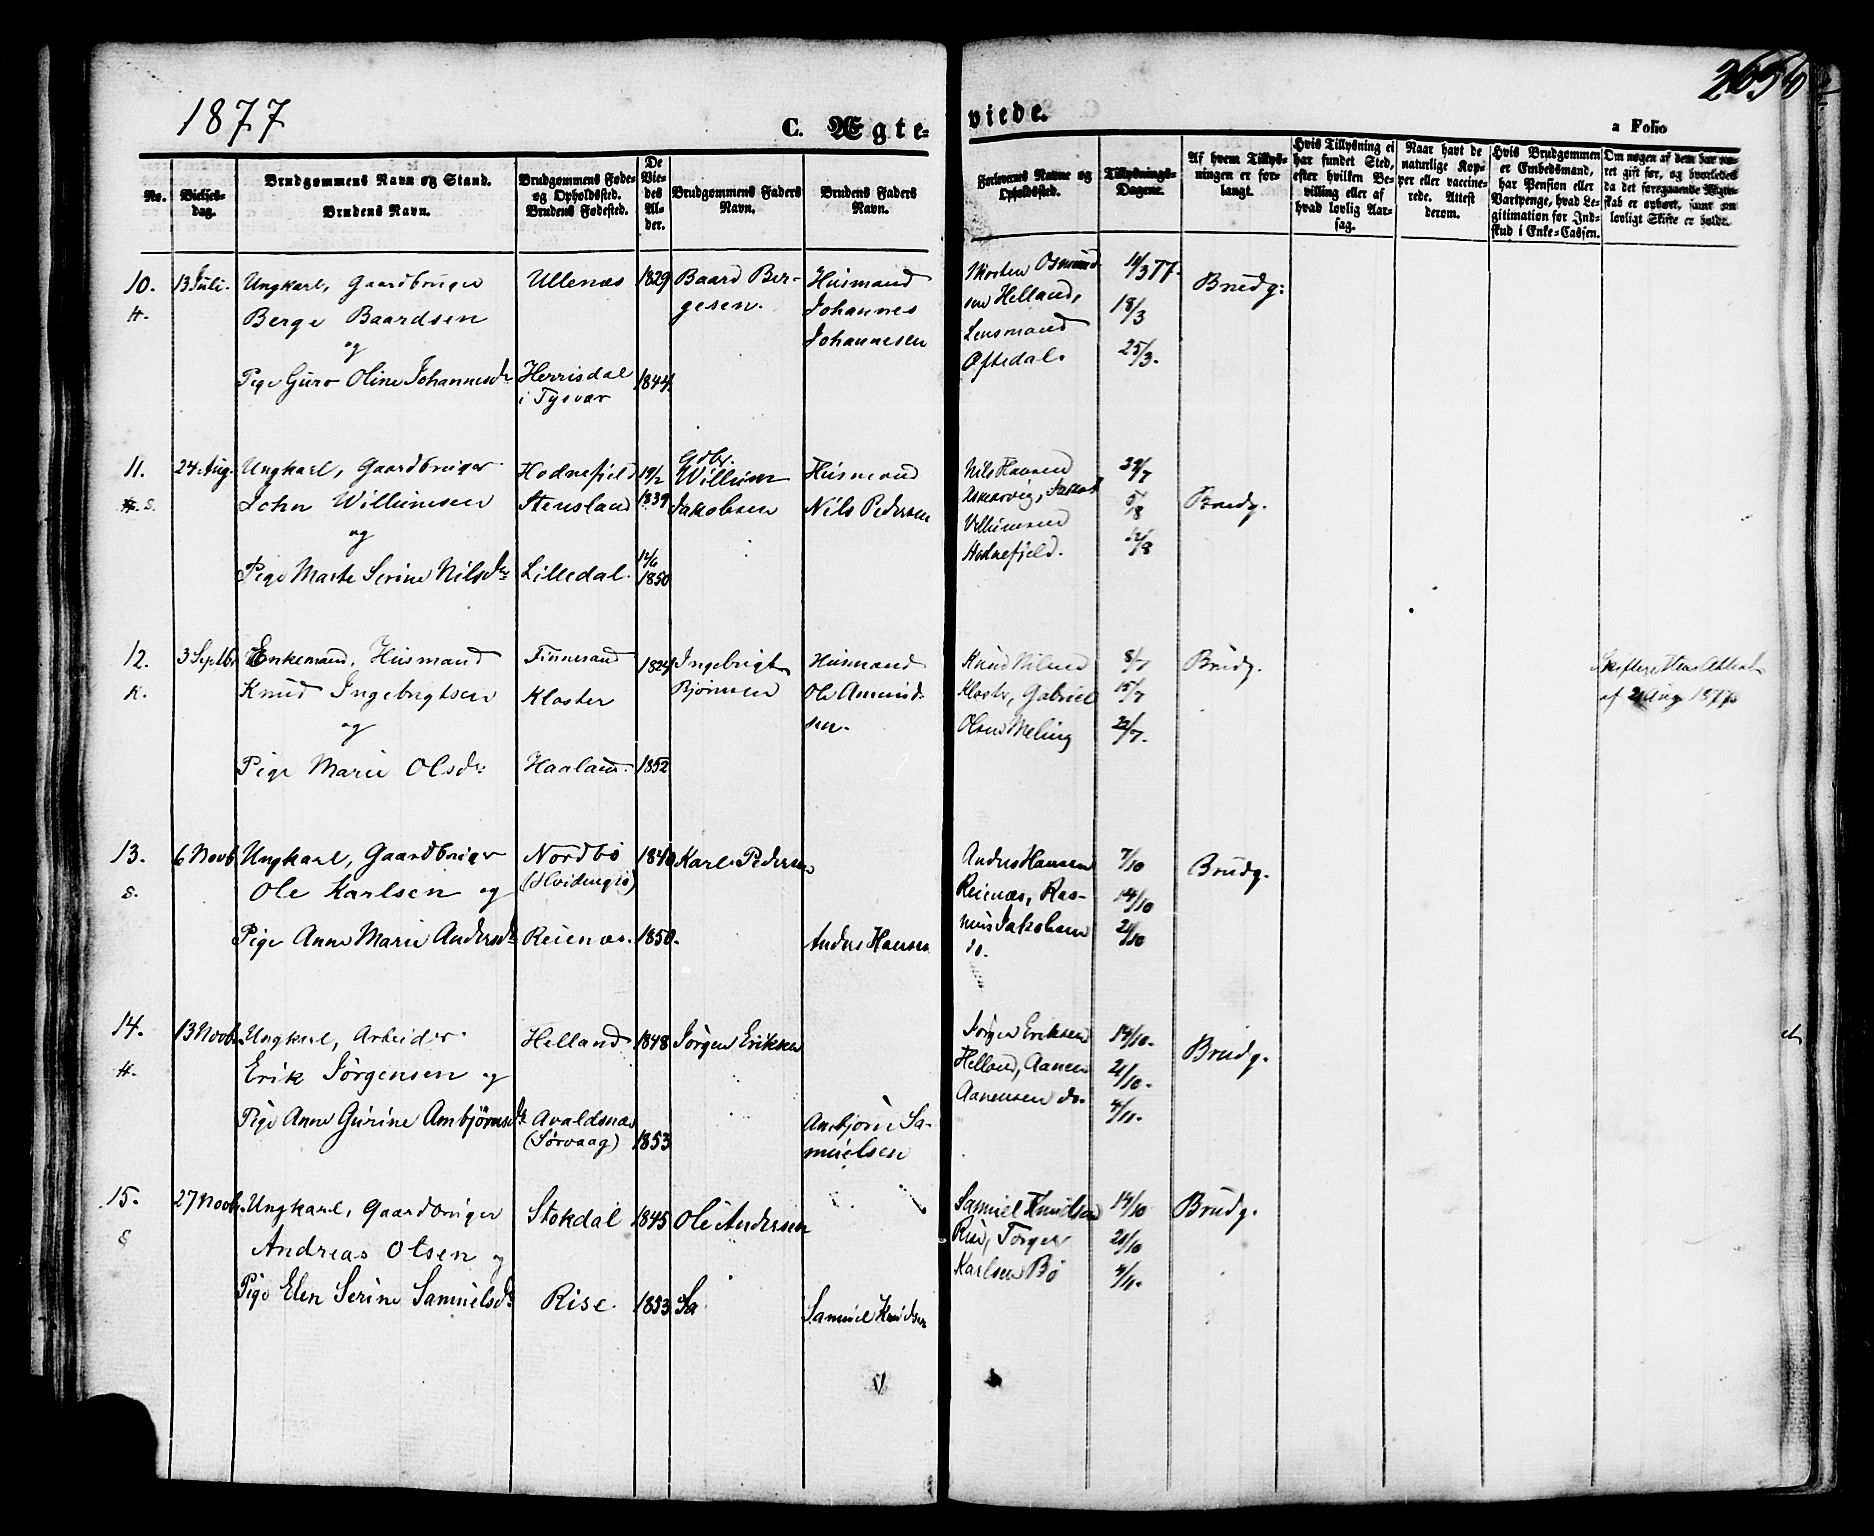 1877
C. Ægte-
viede.
a Folio
No.
Vielses-
dag.
Brudgommens Navn og Stand.
Brudens Navn.
Brudgommens Føde-
og Opholdssted.
Brudens Fødested.
De
Vie-
des
Al-
der.
Brudgommens Faders
Navn.
Brudens Faders
Navn.
Forlovernes Navne og
Opholdssted.
Tillysnings-
Dagene.
Af hvem Tillys-
ningen er for-
langt.
Hvis Tillysning ei
har fundet Sted,
efter hvilken Be-
villing eller af
hvad lovlig Aar-
sag.
Naar havt de
naturlige Kop-
per eller vaccine-
rede. Attest
derom.
Hvis Brudgommen
er Embedsmand,
har Pension eller
Vartpenge, hvad Le-
gitimation for Ind-
skud i Enke-Cassen.
Om nogen af dem har væ-
ret gift før, og hvorledes
da det foregaaende Ægte-
skab er ophørt, samt om
lovligt Skifte er holdt.
10.
H.
13 Juli.
Ungkarl, Gaardbruger
Berge Baardsen
og
Pige Guro Oline Johannesdr
Ullenæs
Herrisdal
i Tysvær
1829
1844
Baard Ber-
gesen.
Husmand
Johannes
Johannesen
Morten Osmund-
sen Helland,
Lensmand
Oftedal.
11/3 77.
18/3
25/3.
Brudg:
11.
S.
24 Aug.
Ungkarl, Gaardbruger
John Willumsen
og
Pige Marte Serine Nilsdr
Hodnefjeld
Stensland
Lilledal.
19/2
1839
12/6
1850
Gdbr.
Willum
Jakobsen
Husmand
Nils Pedersen
Nils Hansen
Askervig, Jakob
Villumsen
Hodnefjeld.
29/7
5/8
12/8
Brudg.
12.
K.
3 Septbr
Enkemand, Husmand
Knud Ingebrigtsen
og
Pige Marie Olsdr
Finnesand
Kloster
Haaland.
1824
1852
Ingebrigt
Bjørnsen
Husmand
Ole Amund-
sen.
Knud Nilsen
Kloster, Gabriel
Olsen Meling
8/7
15/7
22/7.
Brudg.
Skifterettens Attest
af 2 Aug 1877
13.
S.
6 Novb
Ungkarl, Gaardbruger
Ole Karlsen og
Pige Anne Marie Andersdr
Nordbø
(Hvidingsø)
Reienæs.
1840
1850.
Karl Pedersen
Anders Hansen
Anders Hansen
Reienæs, Ras-
mus Jakobsen
do.
7/10
14/10
21/10
Brudg.
14.
H.
13 Novb.
Ungkarl, Arbeider
Erik Jørgensen og
Pige Anne Gurine Ambjørnsdr
Helland
Avaldsnæs
(Sørvaag)
1848
1853
Jørgen Eriksen
Ambjørn Sa-
muelsen
Jørgen Eriksen
Helland, Aanen
Aanensen do.
14/10.
21/10.
4/11.
Brudg.
15.
S
27 Novb.
Ungkarl, Gaardbruger
Andreas Olsen og
Pige Elen Serine Samuelsdr
Stokdal
Rise.
1845
1853
Ole Andersen
Sa
Samuel Knudsen
Samuel Knudsen
Rise, Torger
Karlsen Bø
14/10
21/10
4/11.
Brudg.